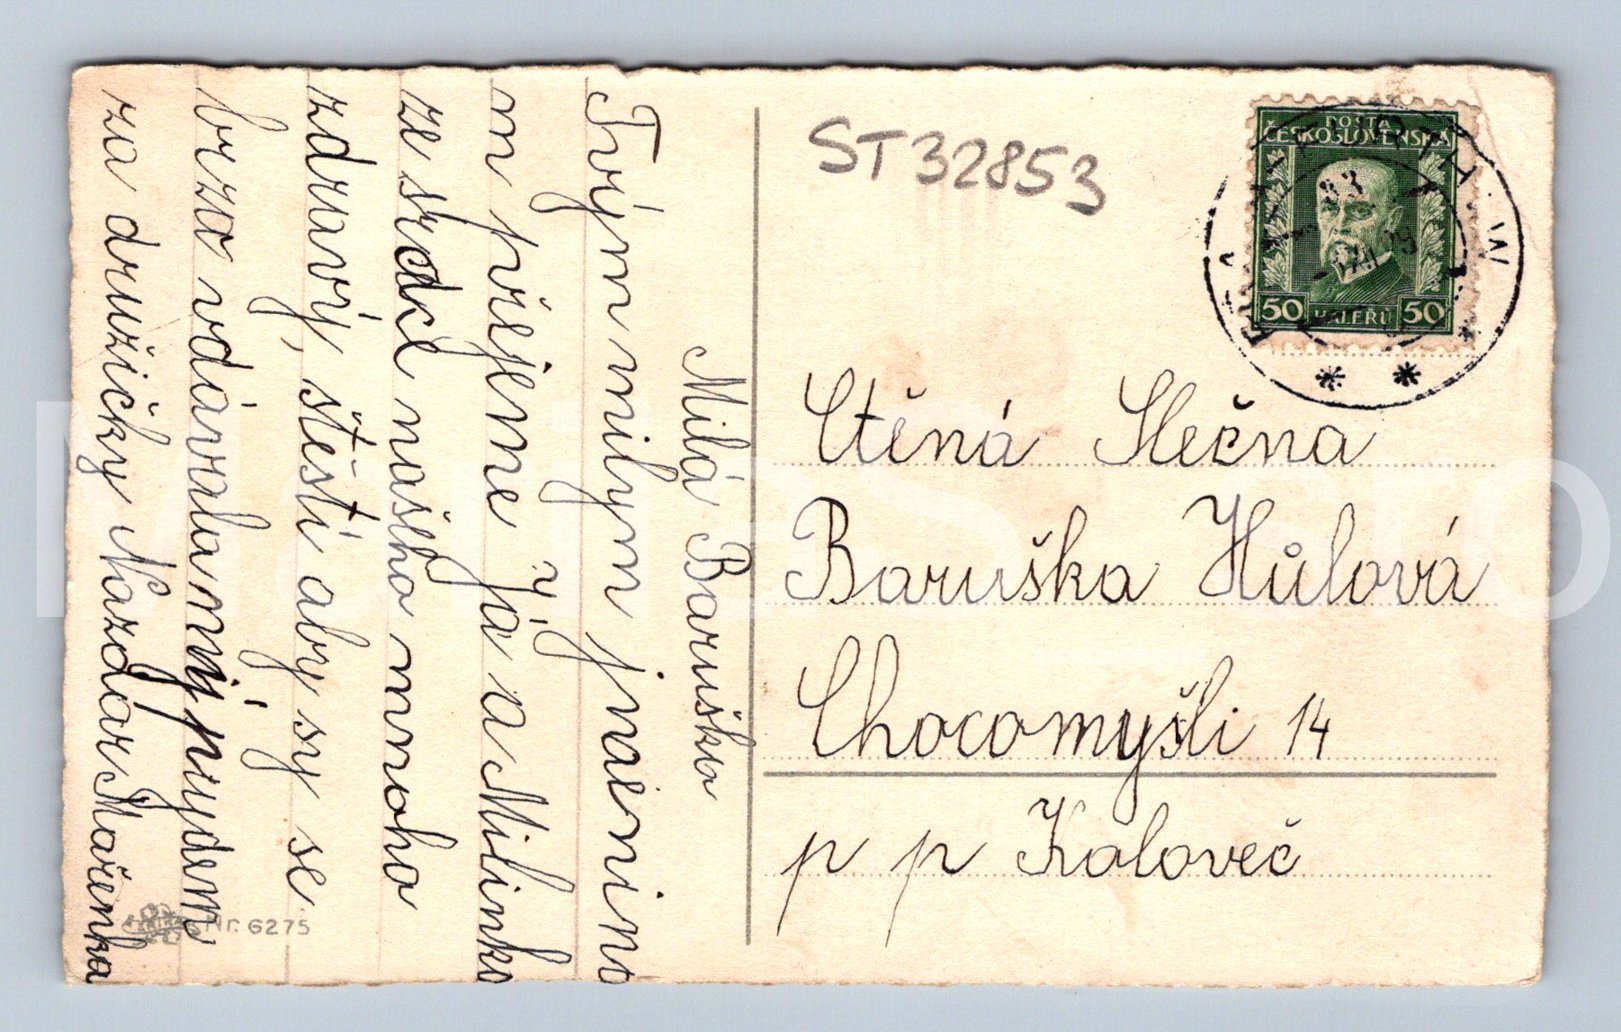 Milá Baruško
Tvým milým jmenino
m přejeme Já a Milinka
ze srdce našeho mnoho
zdraví, štěstí aby sy se
brzo vdávala my pujdem
za družičky Nazdar Mařenka
Nr. 6275
ST32853
POŠTA
ČESKOSLOVENSKÁ
50 HALÉŘŮ 50
Ctěná Slečna
Baruška Hůlová
Chocomyšli 14
p p Koloveč